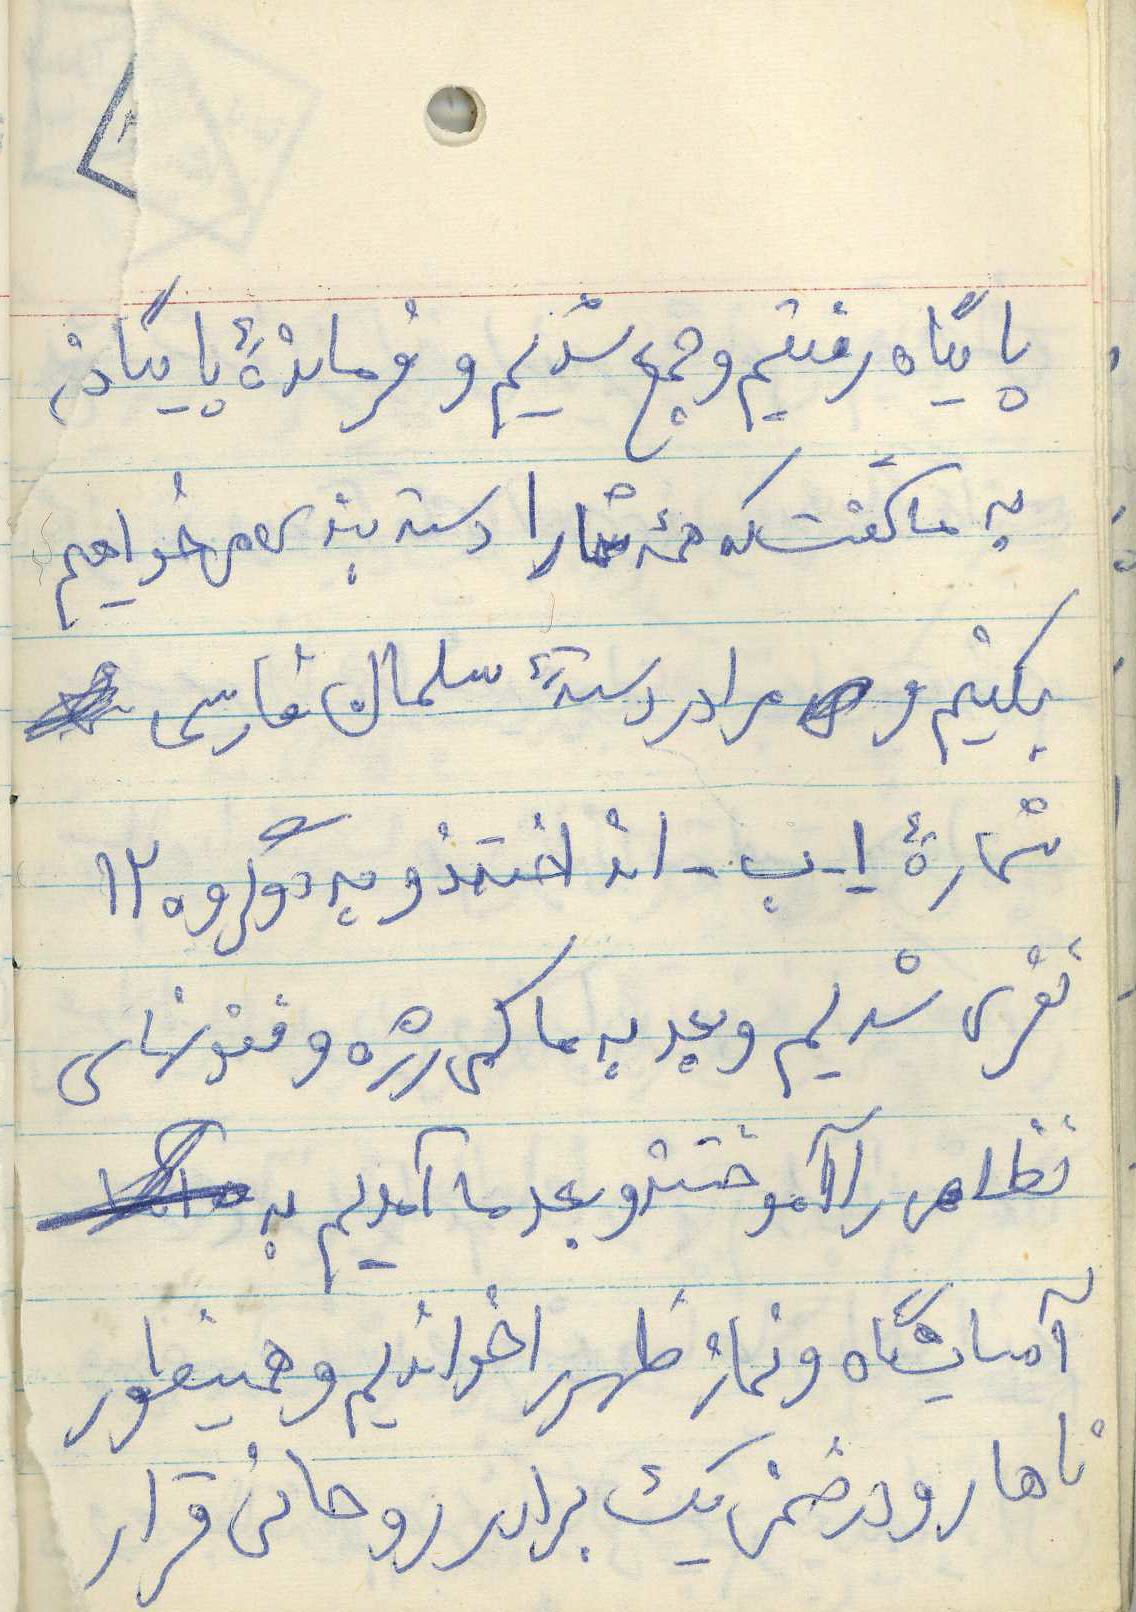 پایگاه رفتیم و جمع شدیم و فرماندهٔ پایگاه
به ما گفت که همهٔ شما را دسته بندی می خواهیم
بکنیم و مرا در دستهٔ سلمان فارسی
شمارهٔ ۱ - ب - انداختند و به دو گروه ۱۲
نفری شدیم و بعد به ما کمی رژه و فنونهای
نظامی را آموختند و بعد ما آمدیم به
آسایشگاه و نماز ظهر را خواندیم و همینطور
ناهار و در ضمن یک برادر روحانی قرار